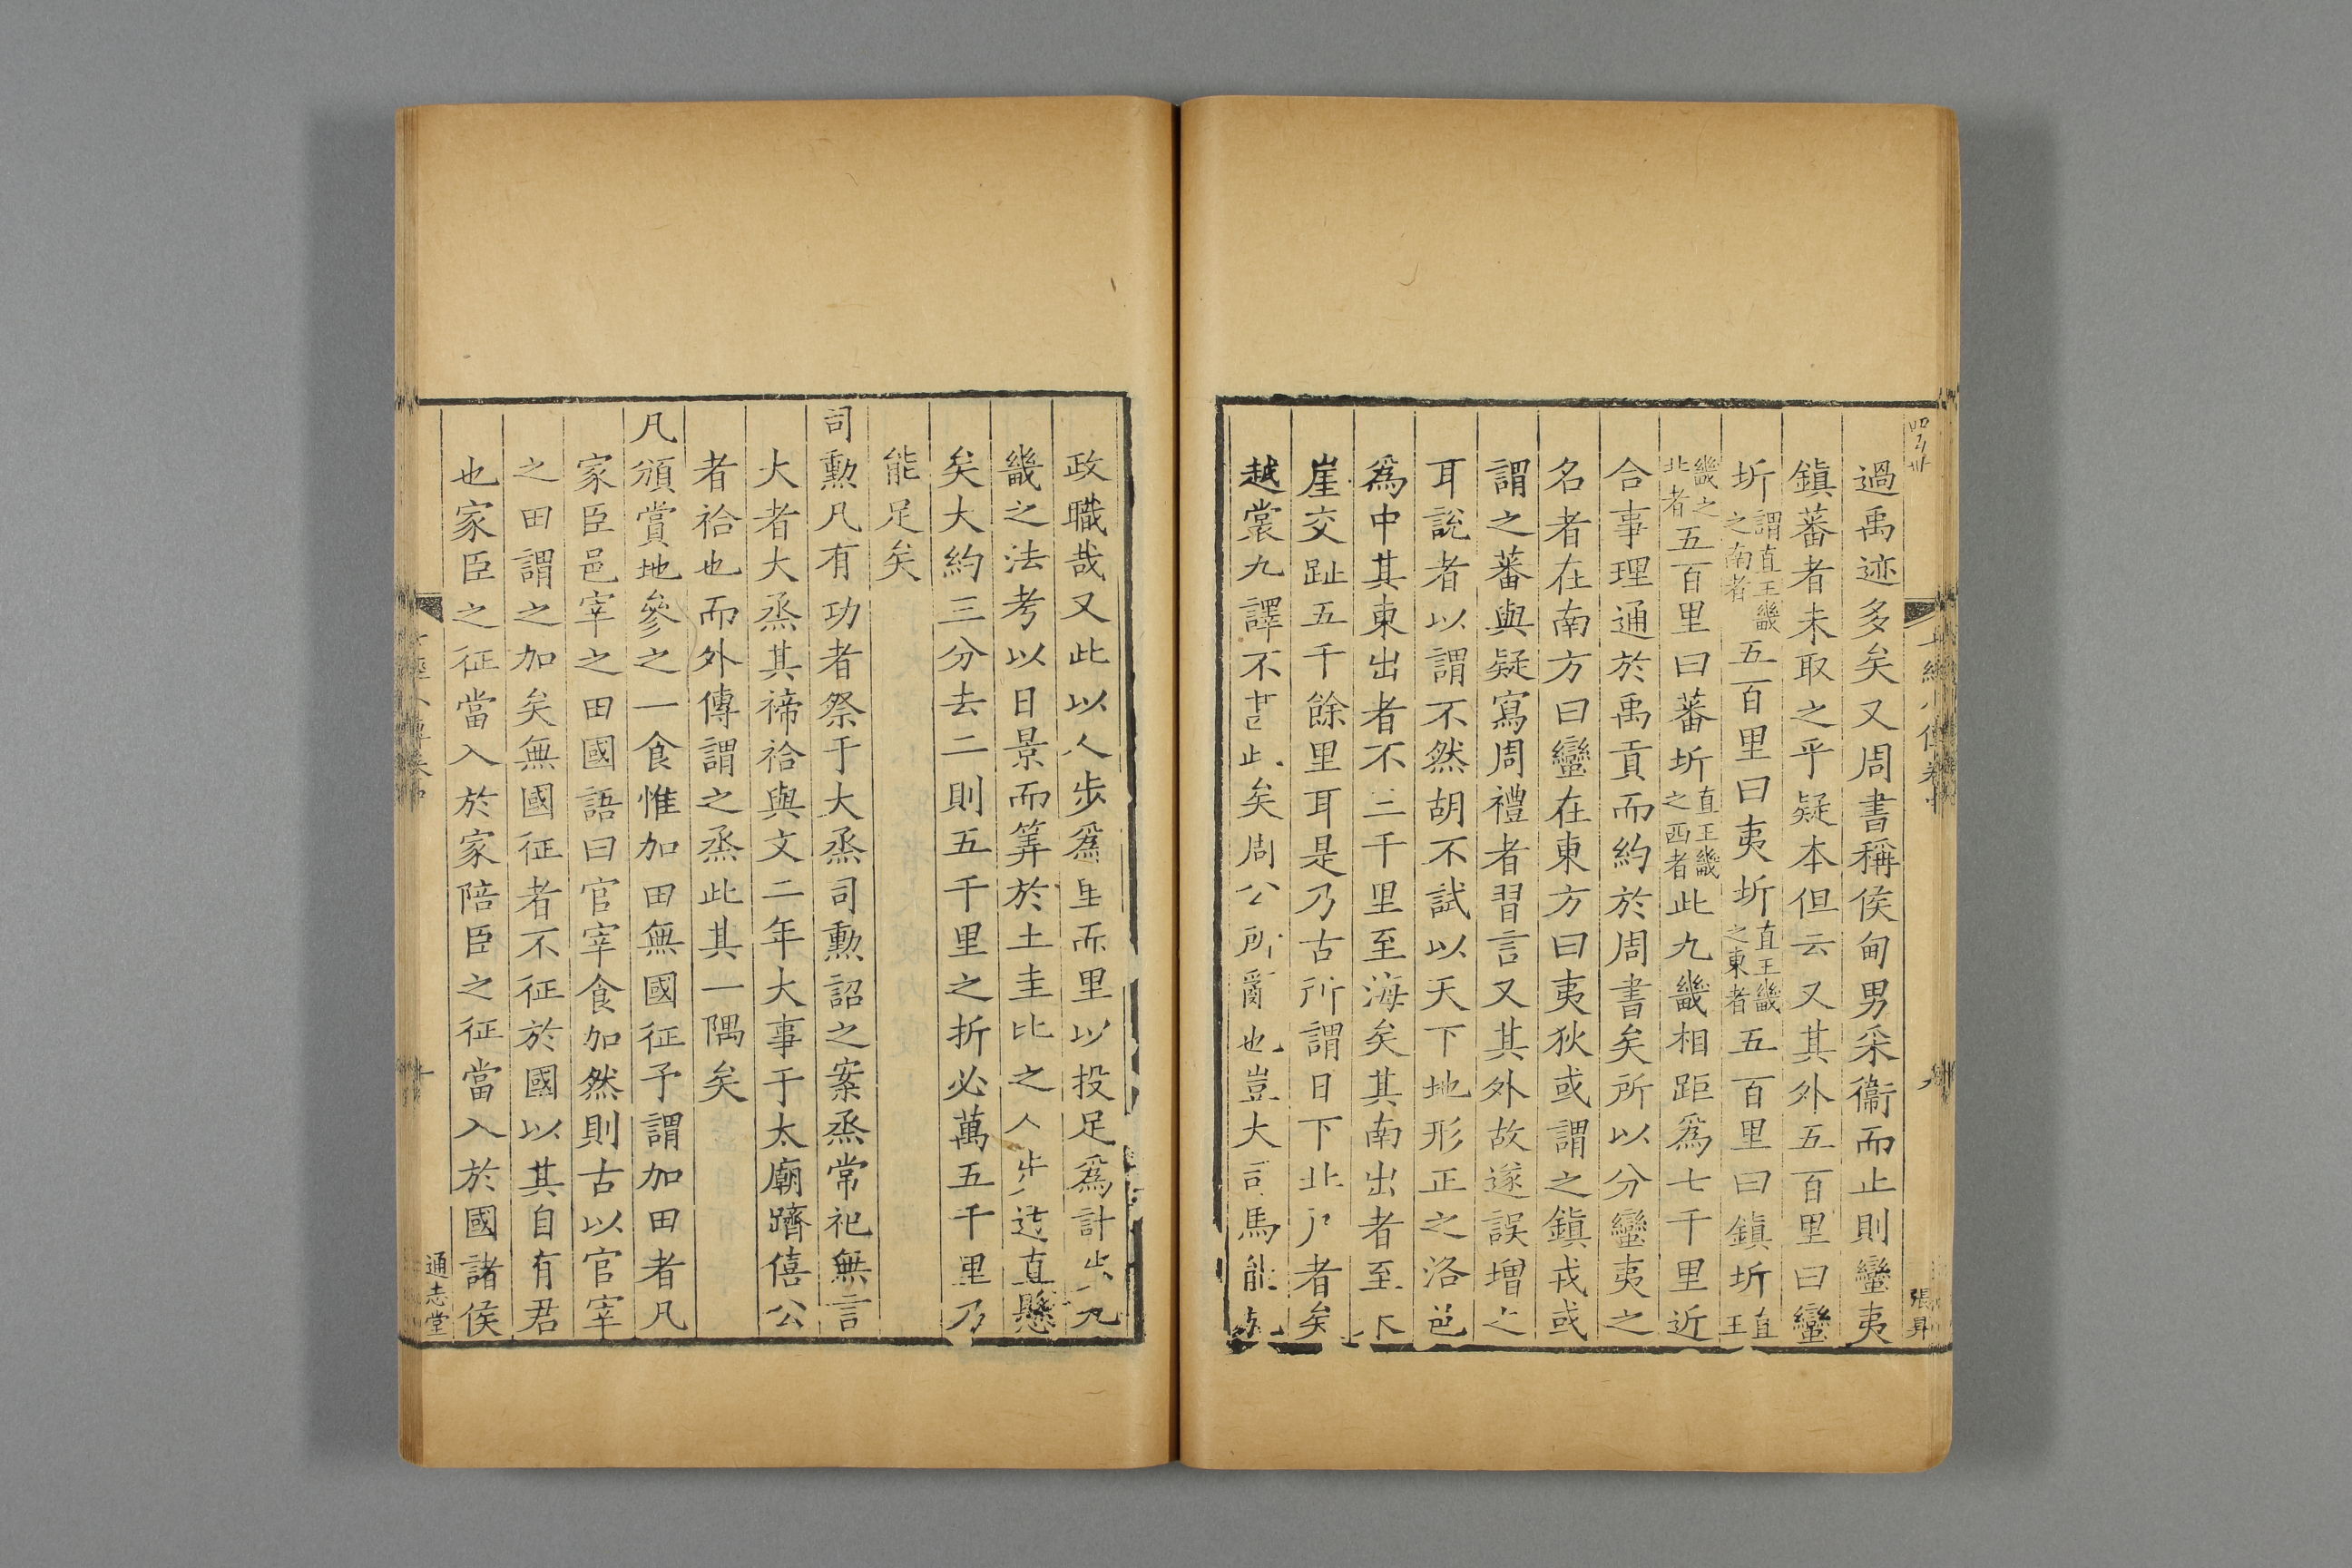 過禹迹多矣又周書稱侯甸男采衞而止則蠻夷
鎮蕃者未取之乎疑本但云又其外五百里曰蠻
圻謂直王畿之南者五百里曰夷圻直王畿之東者五百里曰鎮圻直王
畿之北者五百里曰蕃圻直王畿之西者此九畿相距爲七千里近
合事理通於禹貢而約於周書矣所以分蠻夷之
名者在南方曰蠻在東方曰夷狄或謂之鎮戎或
謂之蕃與疑寫周禮者習言又其外故遂誤增之
耳說者以謂不然胡不試以天下地形正之洛邑
爲中其東出者不二千里至海矣其南出者至朱
崖交趾五千餘里耳是乃古所謂日下北戶者矣
越裳九譯不啻此矣周公所賓也豈大司馬能
張昇
政職哉又此以人步爲里而里以投足爲計步九
畿之法考以日景而筭於土圭比之人步迃直懸
矣大約三分去二則五千里之折必萬五千里乃
能足矣
司勲凡有功者祭于大烝司勲詔之案烝常祀無言
大者大烝其禘祫與文二年大事于太廟躋僖公
者祫也而外傳謂之烝此其一隅矣
凡頒賞地參之一食惟加田無國征予謂加田者凡
家臣邑宰之田國語曰官宰食加然則古以官宰
之田謂之加矣無國征者不征於國以其自有君
也家臣之征當入於家陪臣之征當入於國諸侯
通志堂